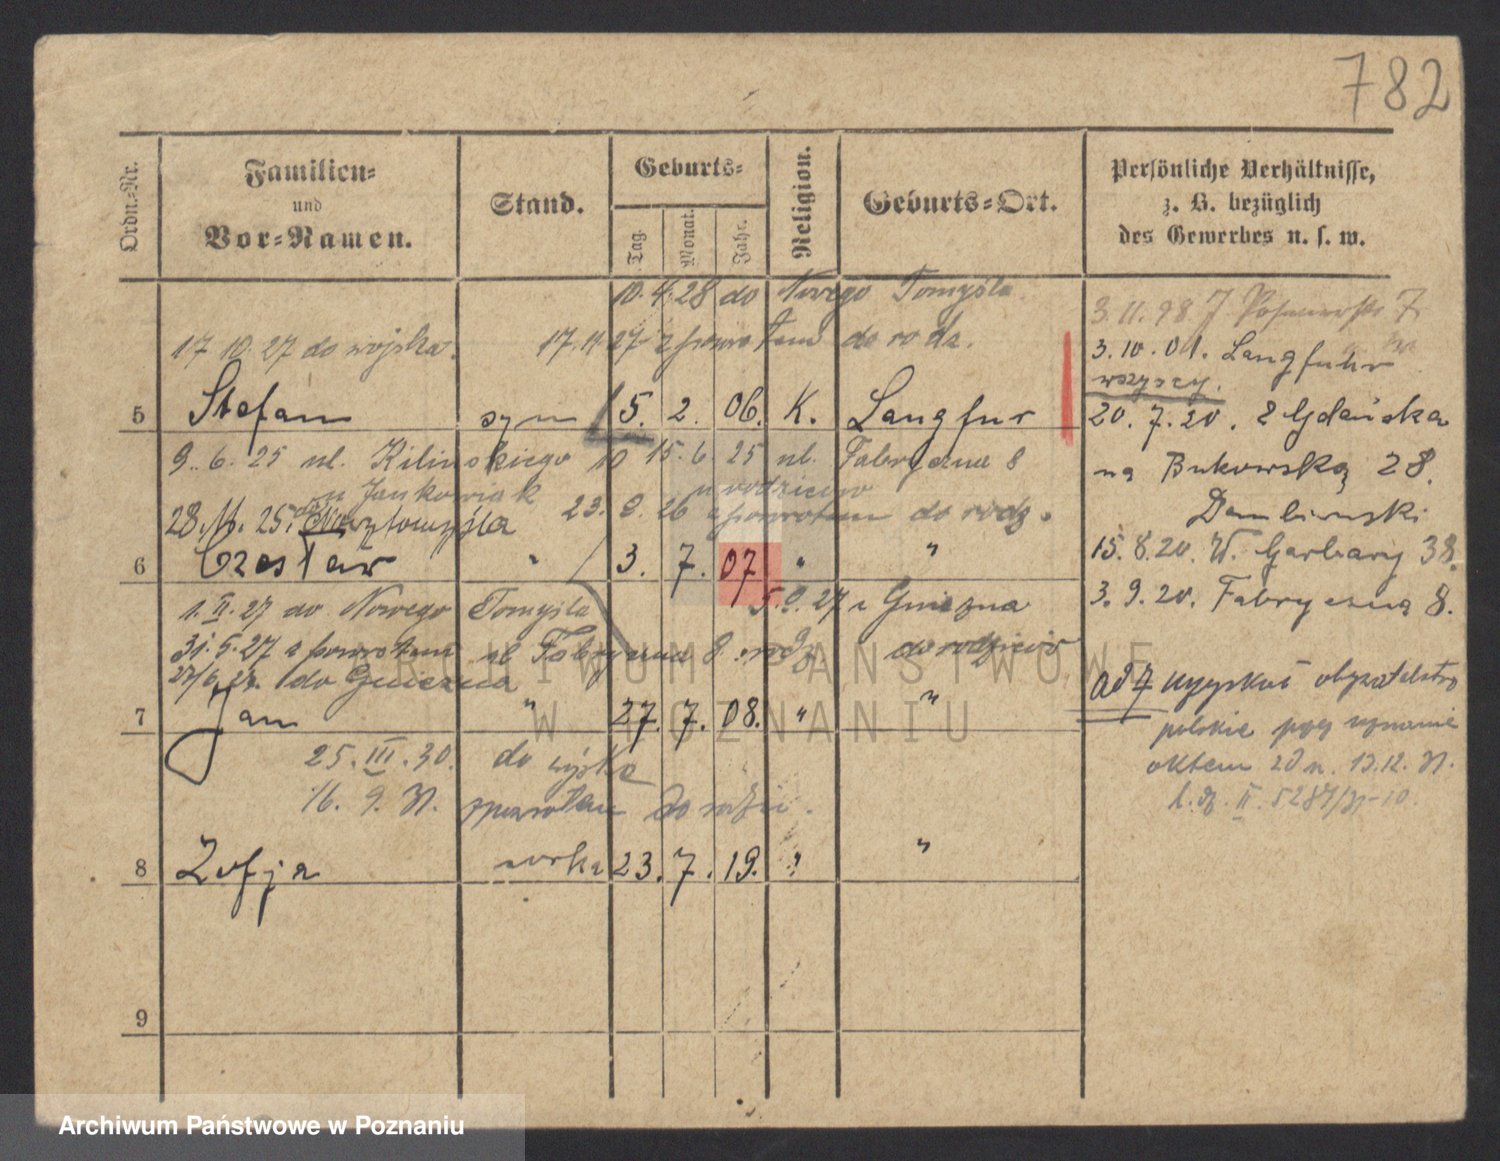 782
Ordn.-Nr.
Familien-
und
Vor-Namen.
Stand.
Geburts-
Tag.
Monat.
Jahr.
Religion.
Geburts-Ort.
Persönliche Verhältnisse,
z. B. bezüglich
des Gewerbes u. s. w.
10. 4. 28 do Nowego Tomyśla
17 10. 27 do wojska. 17. 11 27 z powrotem do rodz.
5 Stefan syn 5. 2. 06. K. Langfur
9. 6. 25 ul. Kilinskiego 10 15. 6. 25 ul. Fabryczna 8
u Jankowiak u rodziców
28. 11. 25. do Now. Tomyśla 23. 9. 26 z powrotem do rodz.
6 Czesław " 3. 7. 07 " "
1. II. 27 do Nowego Tomyśla 5. 9. 27 z Gniezna
31. 5. 27 z powrotem ul Fabryczna 8 rodz do rodziców
27/6 27. do Gniezna
7 Jan " 27. 7. 08. " "
25. III. 30. do wojska
16. 9. 31. zpowrotem do rodzic.
8 Zofja corka 23. 7. 19. " "
9
3. 11. 98
3. 10. 01. Langfuhr
wszyscy.
20. 7. 20. z Gdańska
na Bukowską 28.
Dembinski
15. 8. 20. W. Garbary 38.
3. 9. 20. Fabryczną 8.
ad 7 uzyskał obywatelstwo
polskie przy uznanie
aktem z dn. 13. 12. 31.
ARCHIWUM PAŃSTWOWE
W POZNANIU
Archiwum Państwowe w Poznaniu